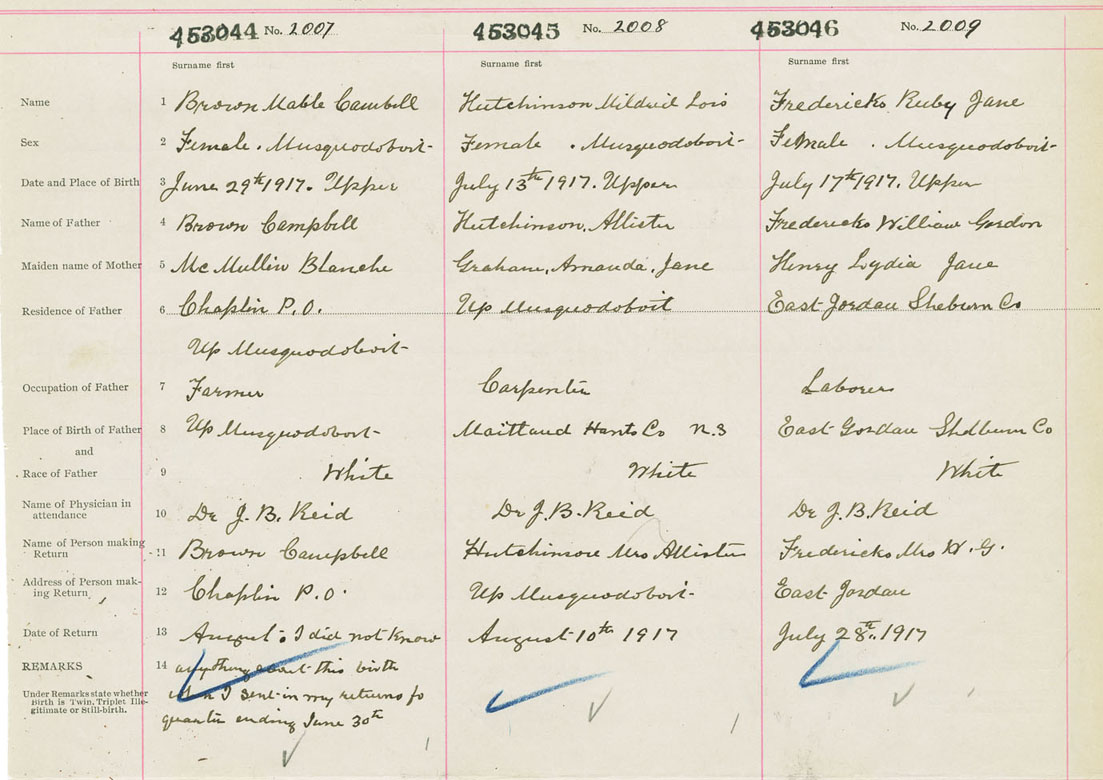 453044 No. 2007 453045 No. 2008 453046 No. 2009
Surname first Surname first Surname first
Name 1 Brown Mable Cambell Hutchinson Mildred Lois Fredericks Ruby Jane
Sex 2 Female . Musquodoboit- Female . Musquodoboit- Female . Musquodoboit-
Date and Place of Birth 3 June 29th 1917. Upper July 13th 1917. Upper July 17th 1917. Upper
Name of Father 4 Brown Campbell Hutchinson, Allister Fredericks William Gordon
Maiden name of Mother 5 Mc Mullin Blanche Graham, Amanda, Jane Henry Lydia Jane
Residence of Father 6 Chaplin P.O. Up Musquodoboit East Jordan Sheburn Co
Up Musquodoboit-
Occupation of Father 7 Farmer Carpenter Laborer
Place of Birth of Father 8 Up Musquodoboit- Maitland Hants Co N.S East Gordan Shelburn Co
and
Race of Father 9 White White White
Name of Physician in
attendance 10 Dr J. B. Reid Dr J. B. Reid Dr J. B. Reid
Name of Person making
Return 11 Brown Campbell Hutchinson Mrs Allister Fredericks Mrs W. G.
Address of Person mak-
ing Return 12 Chaplin P.O. Up Musquodoboit- East Jordan
Date of Return 13 August. I did not know August 10th 1917 July 28th. 1917
REMARKS 14 anything about this birth
Under Remarks state whether
Birth is Twin, Triplet Ille-
gitimate or Still-birth.
when I sent in my returns fo
quarter ending June 30th